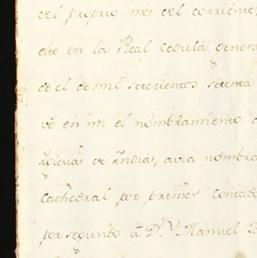 del proprio mes del corriente,
dio en la Real Cedula genera
de el de mil setecientos setenta
ve en mi el nombramiento
Yglesias de Yndias, avia nombra
Cathedral por primer Contado
por segundo â D.ⁿ Manuel